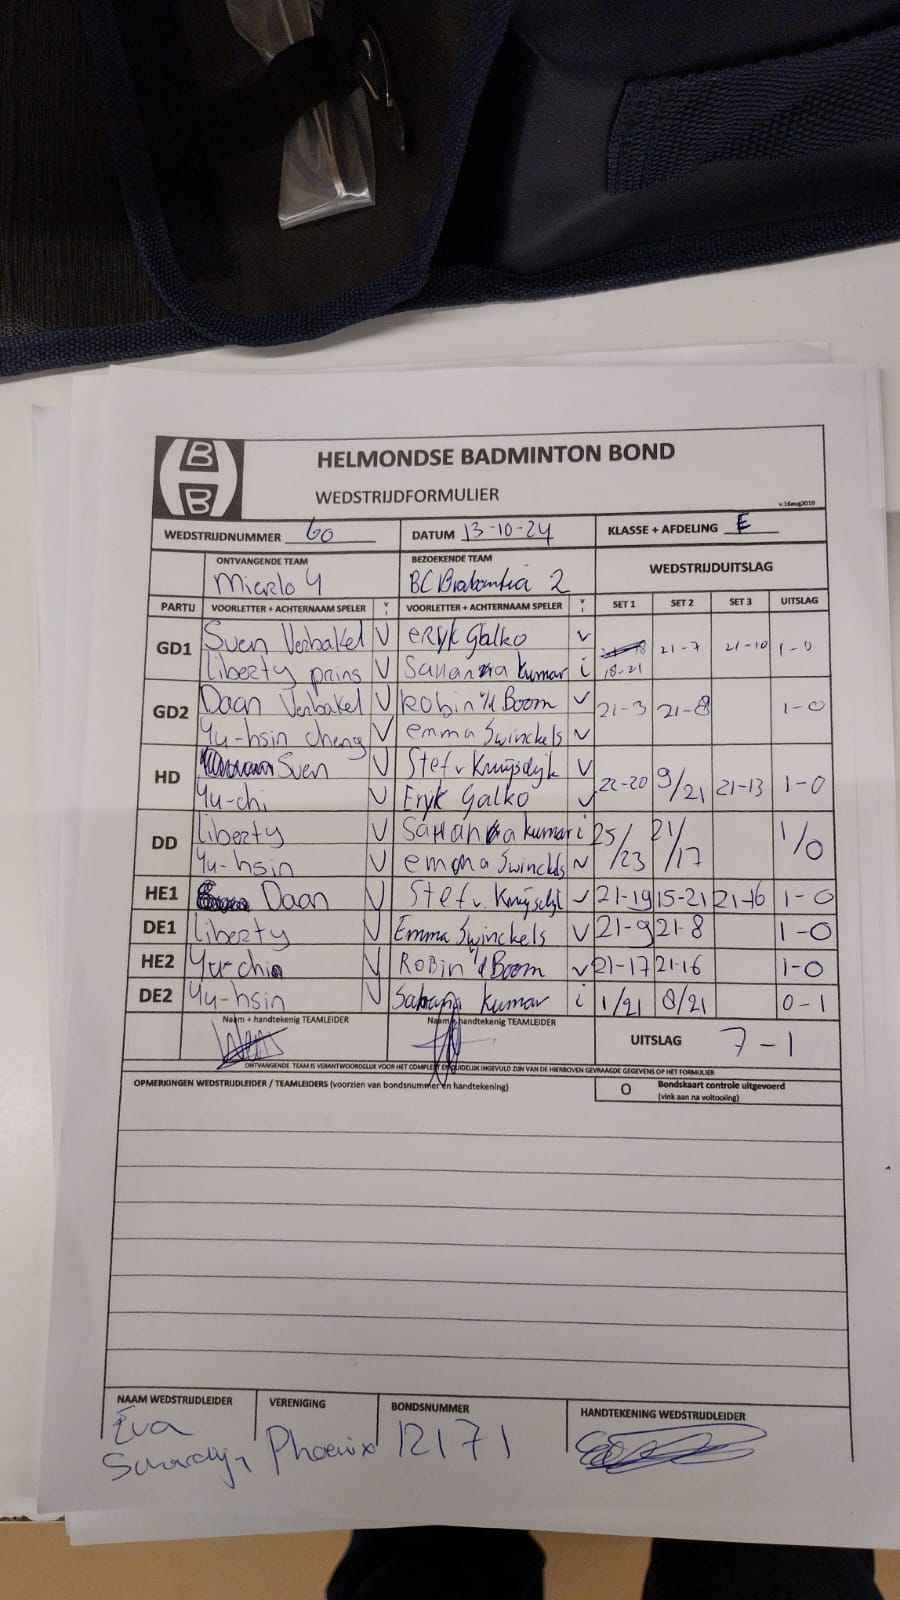 B
B
HELMONDSE BADMINTON BOND
WEDSTRIJDFORMULIER
v.16aug2010
WEDSTRIJDNUMMER 60 DATUM 13-10-24 KLASSE + AFDELING E
ONTVANGENDE TEAM BEZOEKENDE TEAM WEDSTRIJDUITSLAG
Mierlo 4 BC Brabantia 2
PARTIJ VOORLETTER + ACHTERNAAM SPELER V/I VOORLETTER + ACHTERNAAM SPELER V/I SET 1 SET 2 SET 3 UITSLAG
GD1 Sven Verbakel V eryk Galko v 21-7 21-10 1-0
liberty prins V Sahana kumar i 18-21
GD2 Daan Verbakel V Robin v/d Boom v 21-3 21-8 1-0
Yu-hsin cheng V emma Swinckels v
HD Sven V Stef v Kruijsdijk V 22-20 9/21 21-13 1-0
Yu-chi V Eryk Galko v
DD liberty V Sahana kumar i 25/23 21/17 1/0
Yu-hsin V emma Swinckels v
HE1 Daan V Stef v. Kruijsdijk v 21-19 15-21 21-16 1-0
DE1 liberty V Emma Swinckels V 21-9 21-8 1-0
HE2 Yu-chi V Robin v/d Boom v 21-17 21-16 1-0
DE2 Yu-hsin V Sahana kumar i 1/21 8/21 0-1
Naam + handtekenig TEAMLEIDER Naam + handtekenig TEAMLEIDER UITSLAG 7-1
ONTVANGENDE TEAM IS VERANTWOORDELIJK VOOR HET COMPLEET EN DUIDELIJK INGEVULD ZIJN VAN DE HIERBOVEN GEVRAAGDE GEGEVENS OP HET FORMULIER
OPMERKINGEN WEDSTRIJDLEIDER / TEAMLEIDERS (voorzien van bondsnummer en handtekening) O Bondskaart controle uitgevoerd
(vink aan na voltooiing)
NAAM WEDSTRIJDLEIDER VERENIGING BONDSNUMMER HANDTEKENING WEDSTRIJDLEIDER
Eva
Phoenix 12171